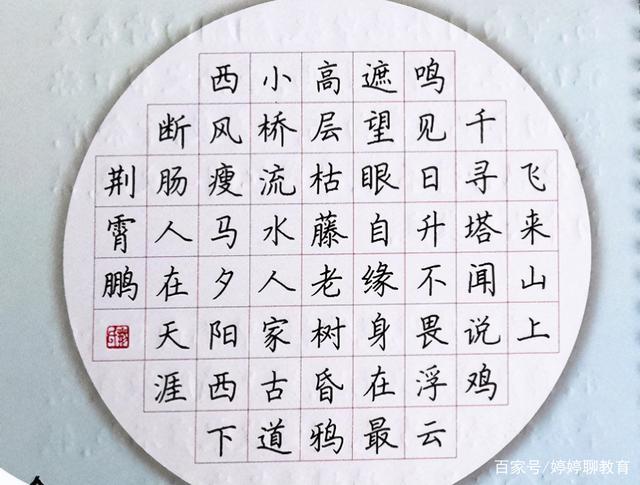 飞来山上
千寻塔闻说鸡
鸣见日升不畏浮云
遮望眼自缘身在最
高层枯藤老树昏鸦
小桥流水人家古道
西风瘦马夕阳西下
断肠人在天涯
荆霄鹏
百家号/婷婷聊教育